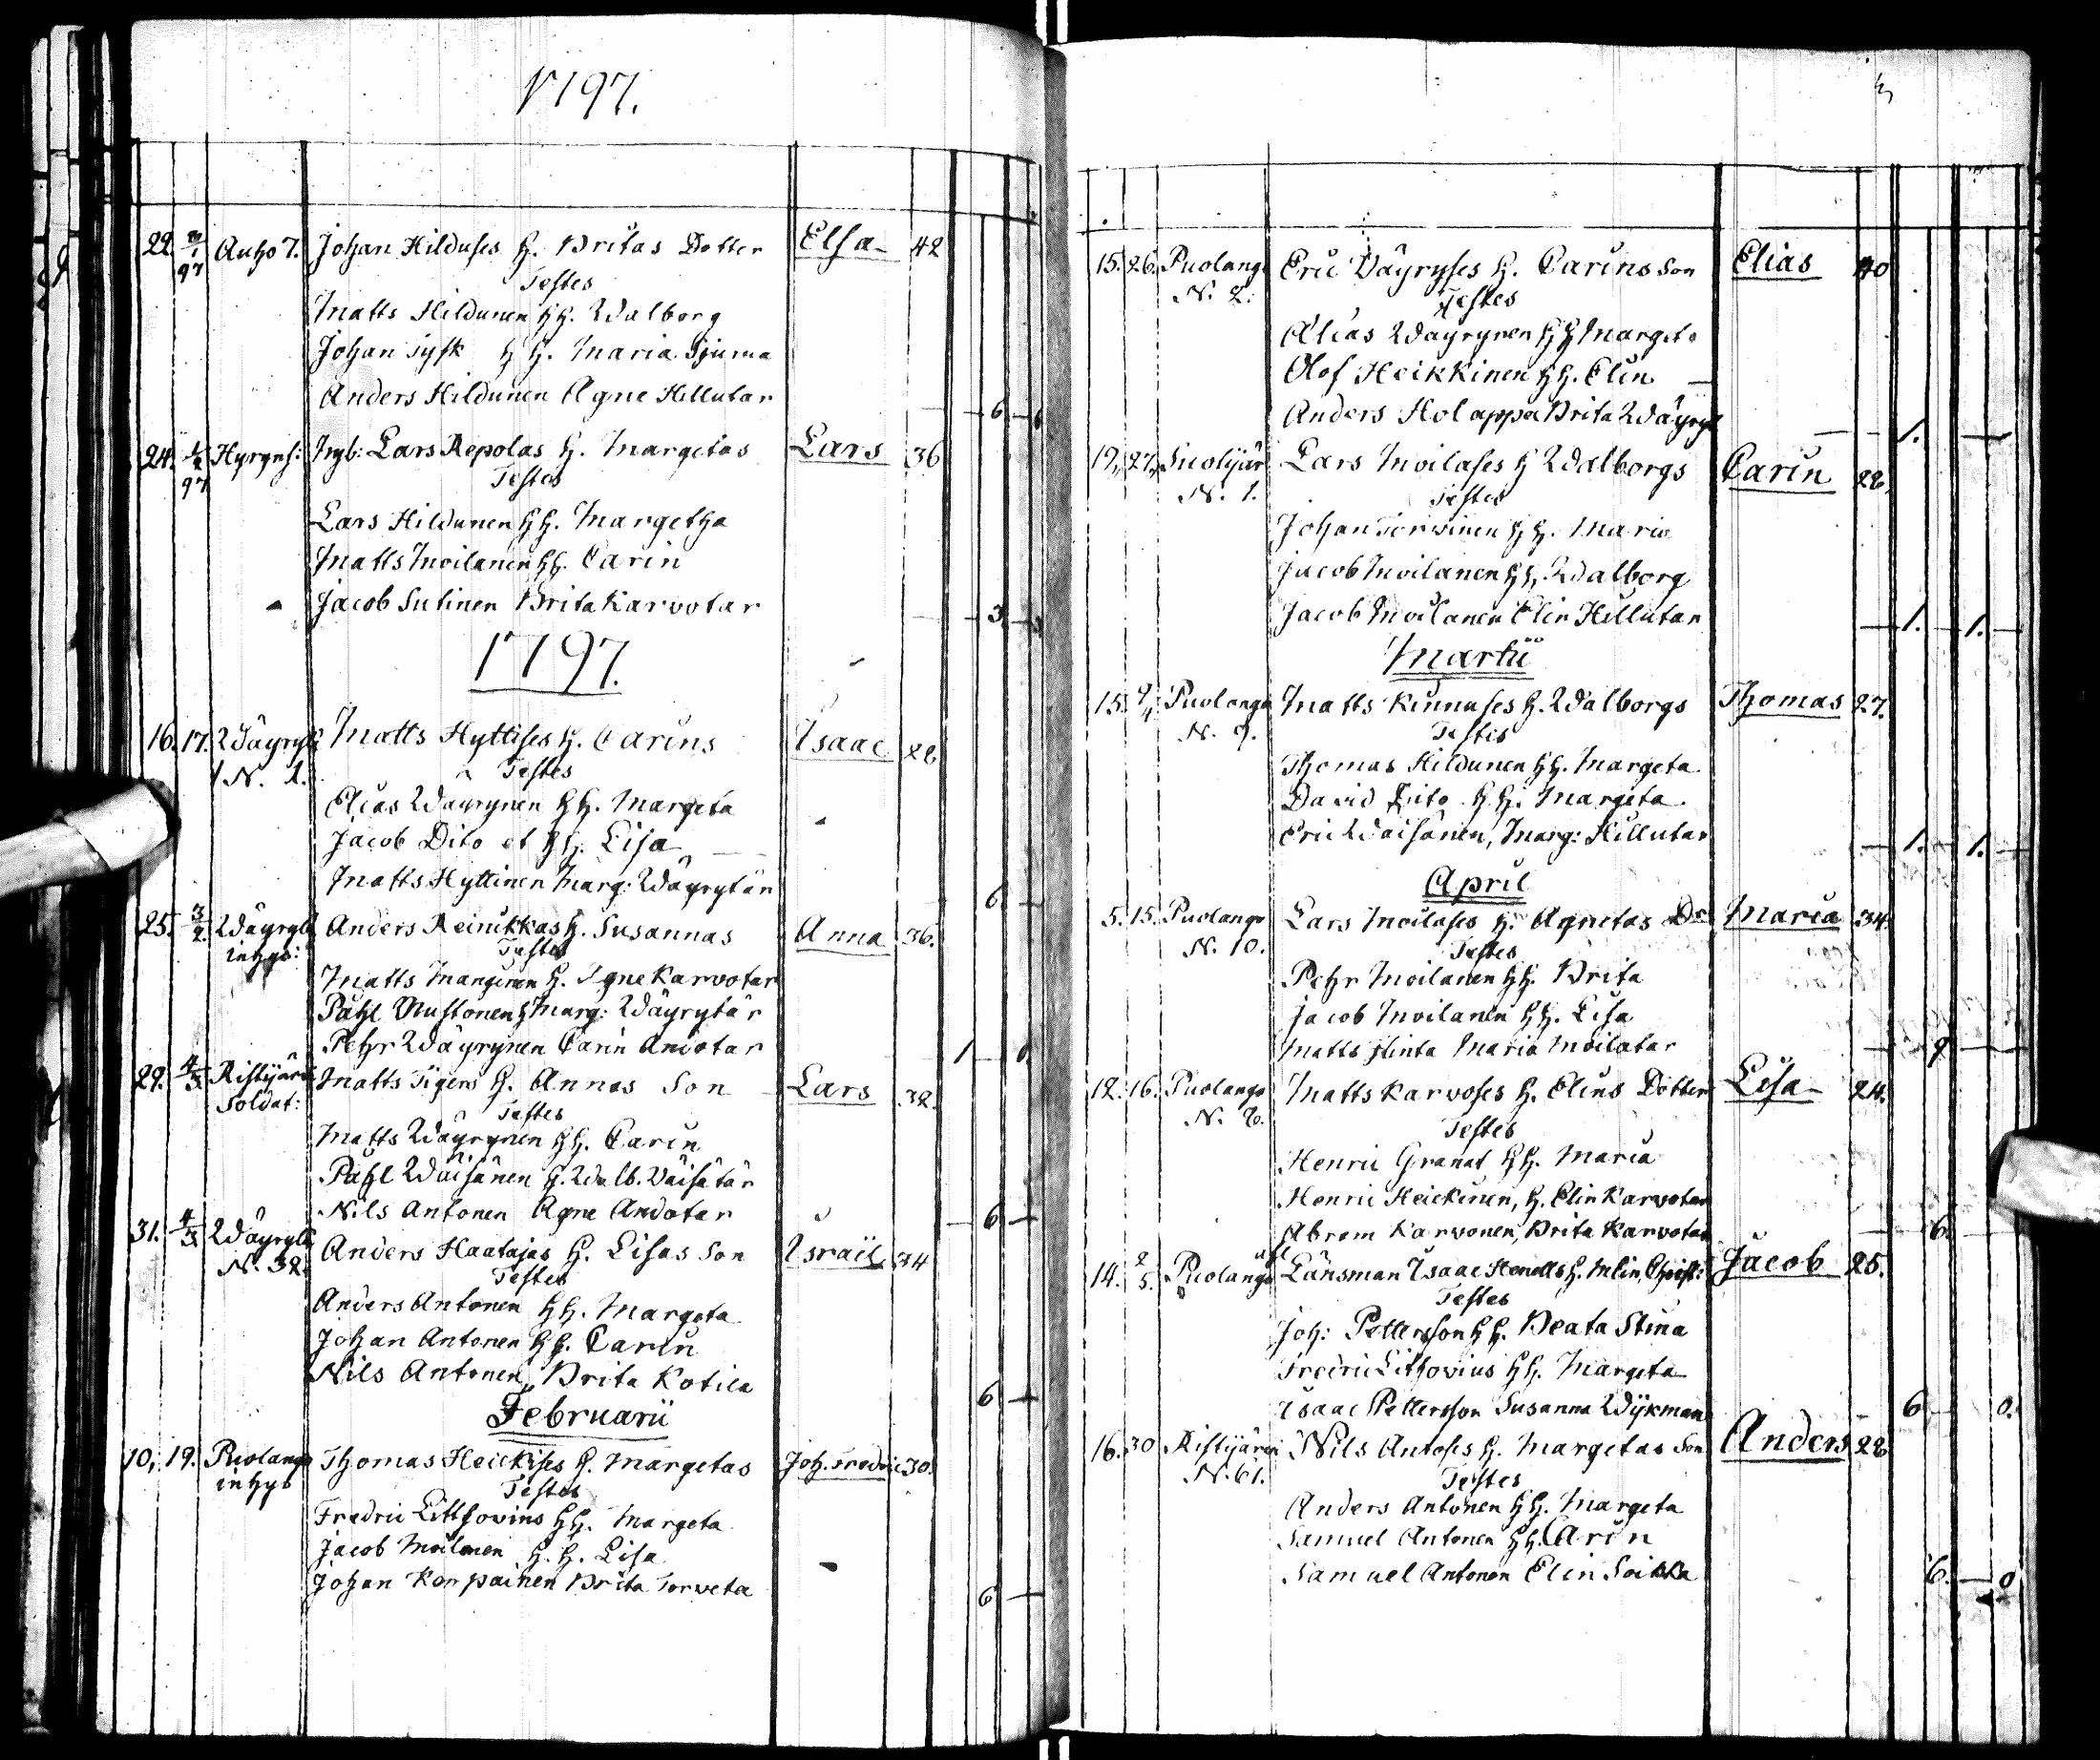 1797.
22. 3/1 97 Auho 7. Johan Hilduses H. Britas Dotter Elsa 42
Testes
Matts Hildunen HH. Walborg
Johan Tysk HH. Maria Sjuma
Anders Hildunen Agne Hillutar
6
24. 1/2 97 Hyryns: Inyb: Lars Repolas H. Margetas Lars 36
Testes
Lars Hildunen HH. Margetha
Matts Moilanen HH. Carin
Jacob Sutinen Brita Karvotar
3
1797.
16. 17. Wäyryl Matts Hyttises H. Carins Isaac 28
N. 1. Testes
Elias Wäyrynen HH. Margeta
Jacob Dito et HH. Lisa
Matts Hyttinen Marg: Wäyrytär
6
25. 3/2 Wäyryl Anders Reinikkas H. Susannas Anna 36.
inhys: Testes
Matts Manginen H. Agne Karvotar
Påhl Mustonen H Marg: Wäyrytär
Pehr Wäyrynen Carin Andotar
1 6
29. 4/3 Ristijärvi Matts Tigers H. Annas Son Lars 32.
Soldat: Testes
Matts Wäyrynen HH. Carin
Påhl Wäisänen H. Walb. Väisätär
Nils Antonen Agne Andotar
6
31. 4/3 Wäyryl Anders Haatajas H. Lisas Son Israël 34
N. 32. Testes
Anders Antonen HH. Margeta
Johan Antonen HH. Carin
Nils Antonen, Brita Kotila
6
Februarii
10, 19. Puolango Thomas Heickises H. Margetas Joh. Fredric 30.
inhys Testes
Fredric Lithovius HH. Margeta
Jacob Moilanen H. H. Lisa
Johan Korpainen Brita Torveta
6
15. 26. Puolango Eric Väyryses H. Carins Son Elias 40
N. 2. Testes
Elias Wäyrynen HH Margeta
Olof Heikkinen HH. Elin
Anders Holappa Brita Wäyryt
1.
19. 27. Suolijär Lars Moilases H Walborgs Carin 28.
N. 1. Testes
Johan Torvinen HH. Maria
Jacob Moilanen HH. Walborg
Jacob Moilanen Elin Hillutar
1. 1.
Martii
15. 9/4 Puolango Matts Kinnuses H. Walborgs Thomas 27.
N. 9. Testes
Thomas Hildunen HH. Margeta
David Dito HH. Margeta
Eric Wäisänen, Marg: Hillutar
1. 1.
April
5. 15. Puolango Lars Moilases H. Agnetas Dr Maria 34.
N. 10. Testes
Pehr Moilanen HH. Brita
Jacob Moilanen HH. Lisa
Matts Flinta Maria Moilatar
9
12. 16. Puolango Matts Karvoses H. Elins Dotter Lisa 24.
Testes
Henric Granat HH. Maria
Henric Heickinen, H. Elin Karvotar
Abram Karvonen, Brita Karvotar
6.
14. 2/5. Puolango Länsman Isaac H. Mlin, Christ: Jacob 25.
Testes
Joh: Pettersson HH. Beata Stina
Fredric Lithovius HH. Margeta
Isaac Pettersson Susanna Wijkman
6 0.
16. 30 Ristijärvi Nils Antoses H. Margetas Son Anders 28
N. 61. Testes
Anders Antonen HH. Margeta
Samuel Antonen HH. Carin
Samuel Antonen Elin Soikka
6. 0